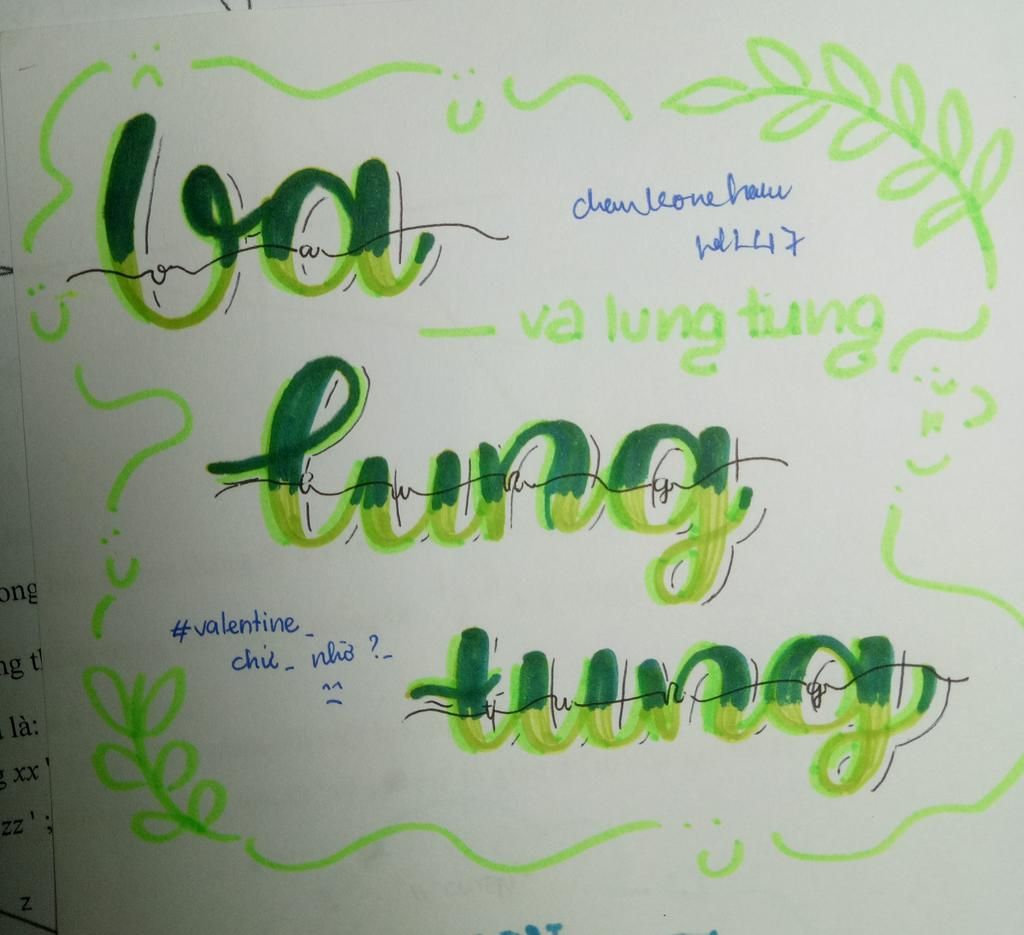 va
— va lung tung
lung
#valentine_
chứ_ nhờ ?_
^^
tung
ong
ng t
là:
g xx '
zz ' ;
z